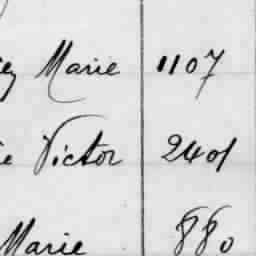 ey Marie 1107
ie Victor 2401
Marie 880